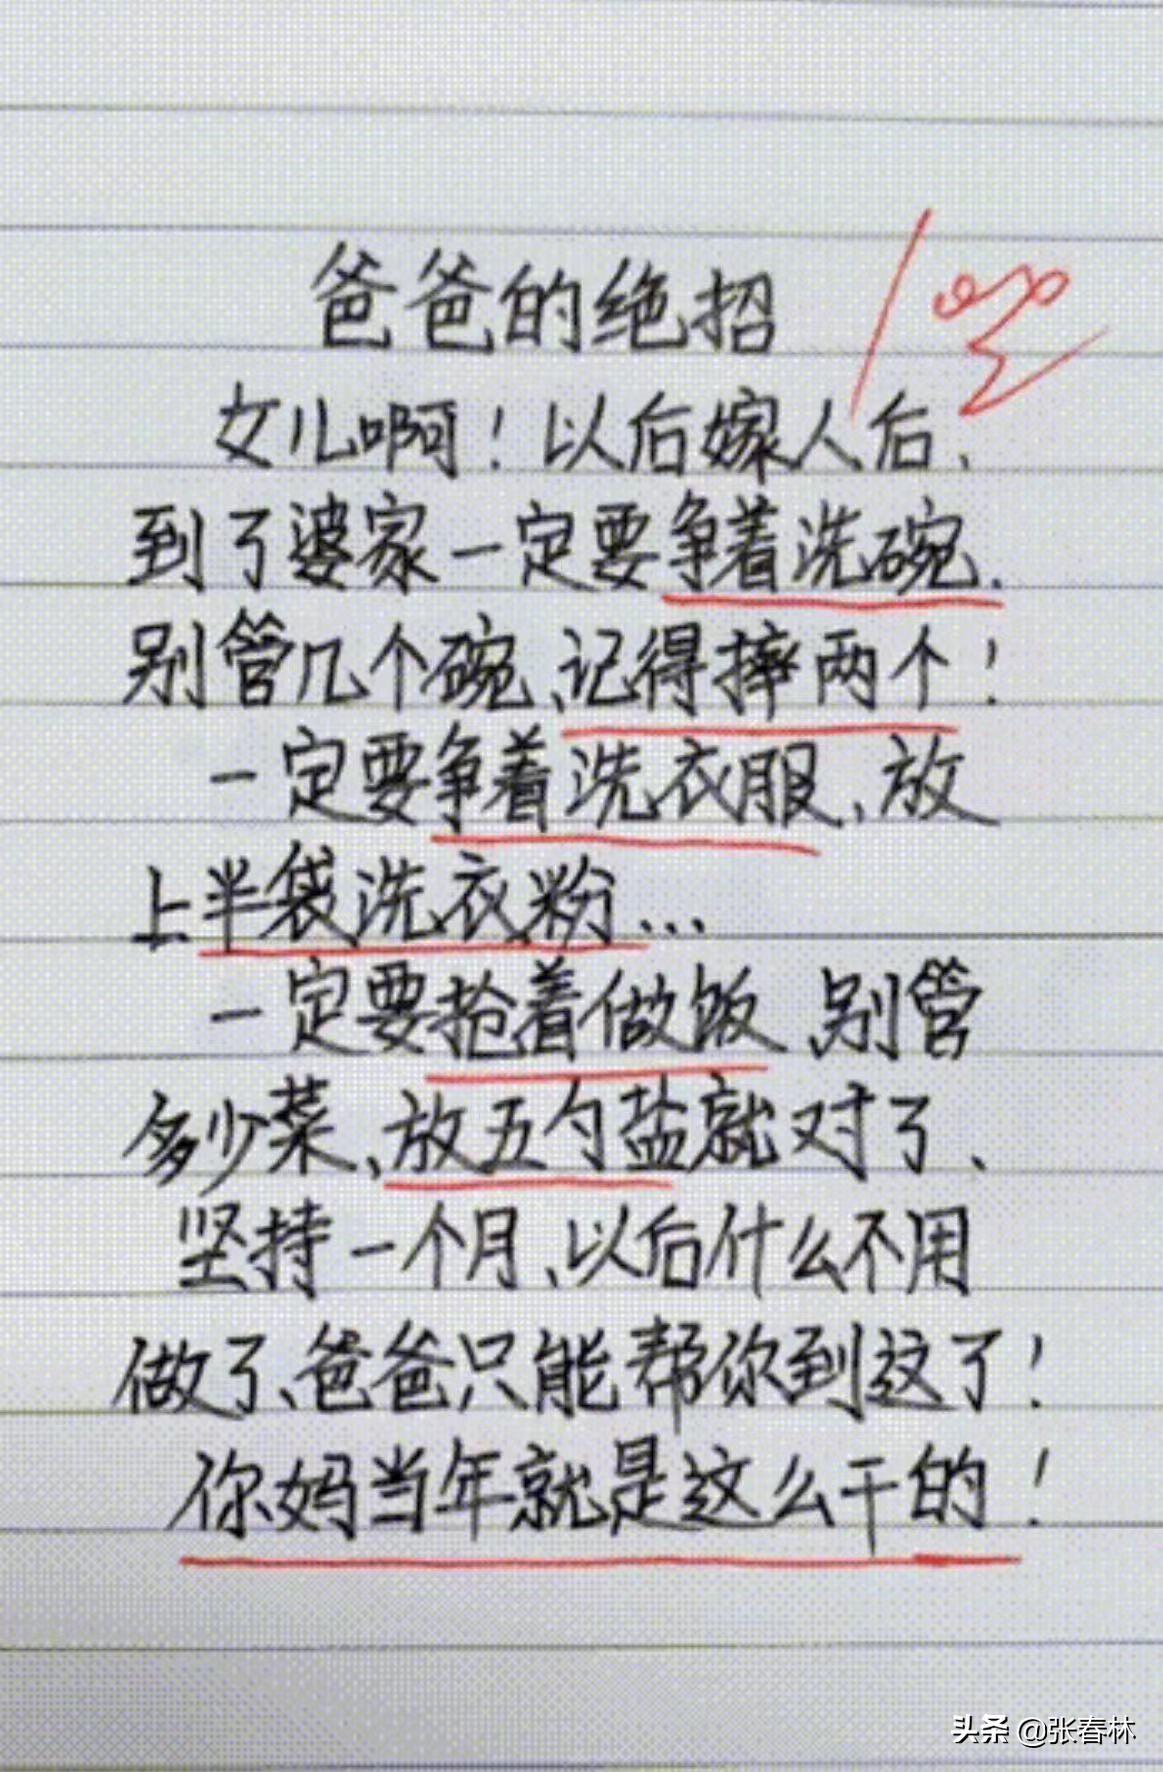 爸爸的绝招
100
女儿啊！以后嫁人后、
到了婆家一定要争着洗碗.
别管几个碗、记得摔两个！
一定要争着洗衣服、放
上半袋洗衣粉...
一定要抢着做饭、别管
多少菜、放五勺盐就对了、
坚持一个月、以后什么不用
做了、爸爸只能帮你到这了！
你妈当年就是这么干的！
头条 @张春林